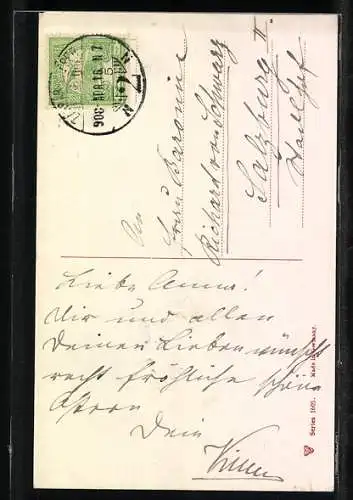 An
Frau Baronin
Richard von Schwarz
Salzburg II
Liebe Anna!
Dir und allen
Deinen Lieben wünscht
recht fröhliche schöne
Ostern
Dein
Series 1601.